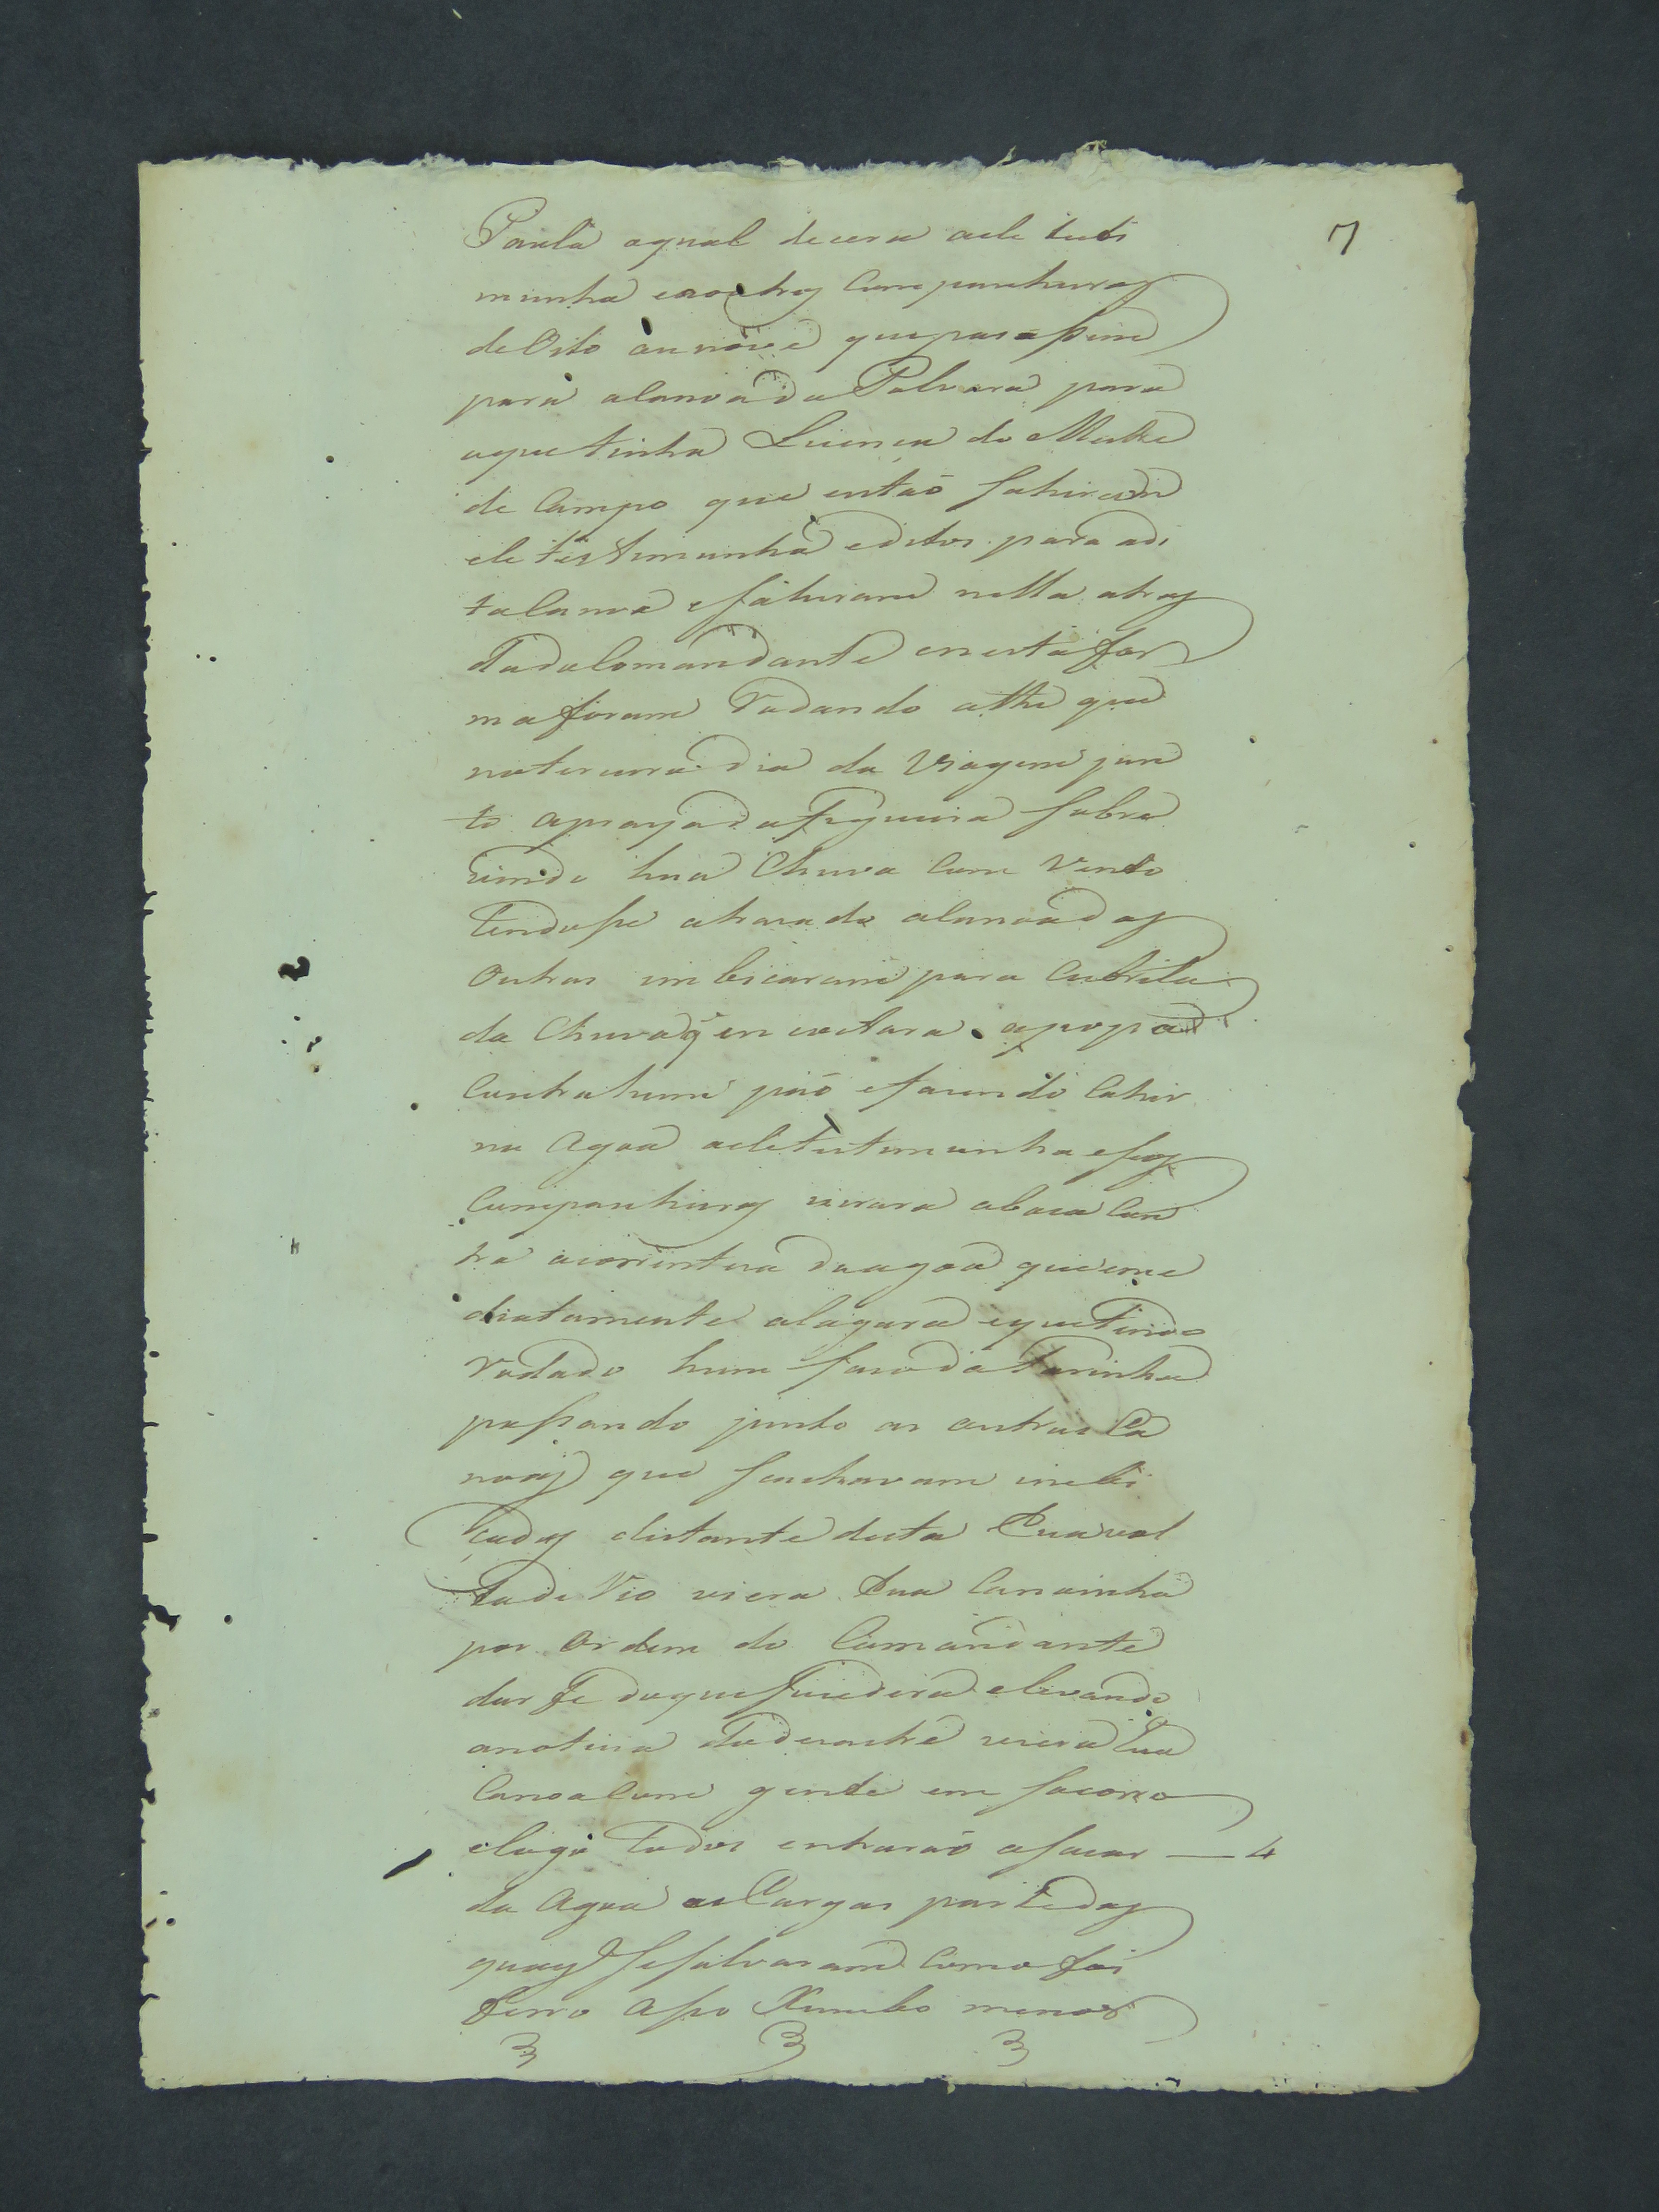 7
Paula aqual decera aele testi
munha eaoutros Companheiros
de Oito ànnove que pasassem
para aCanoa da Polvora para
oque tinha Licenca do Mestre
de Campo que então sahiram
ele testimunha editos para adi
ta Canoa esahiram nella atras
Dada Comandante enesta for
ma foram Rodando athe que
noterceiro dia da Viagem jun
to apraya da Figueira sobre
vindo hua Chuva Com Vento
Tendose atracado aCanoa das
Outras imbicaram para Cubrila
da Chuva q̃ encostara apopa
Contra hum páo efazendo Cahir
na Agoa aeletestemunha eseos
Companheiros virara aboca Con
tra acorrenteza da agoa que eme
diatamente alagara eque tendo
Rodado hum saco da Farinha
passando junto as outras Ca
noas que se achavam imbi
cadas distante desta hua vol
ta de Rio viera hua Canoinha
por Ordem do Comandante
dar Fe do que sucedera elevando
anoticia do dezastre viera hua
Canoa Com gente em socorro
elogo Todos entrarão asacar — 4
da Agoa as Cargas parte das
quais se salvaram Como foi
Ferro Aso Xumbo menos